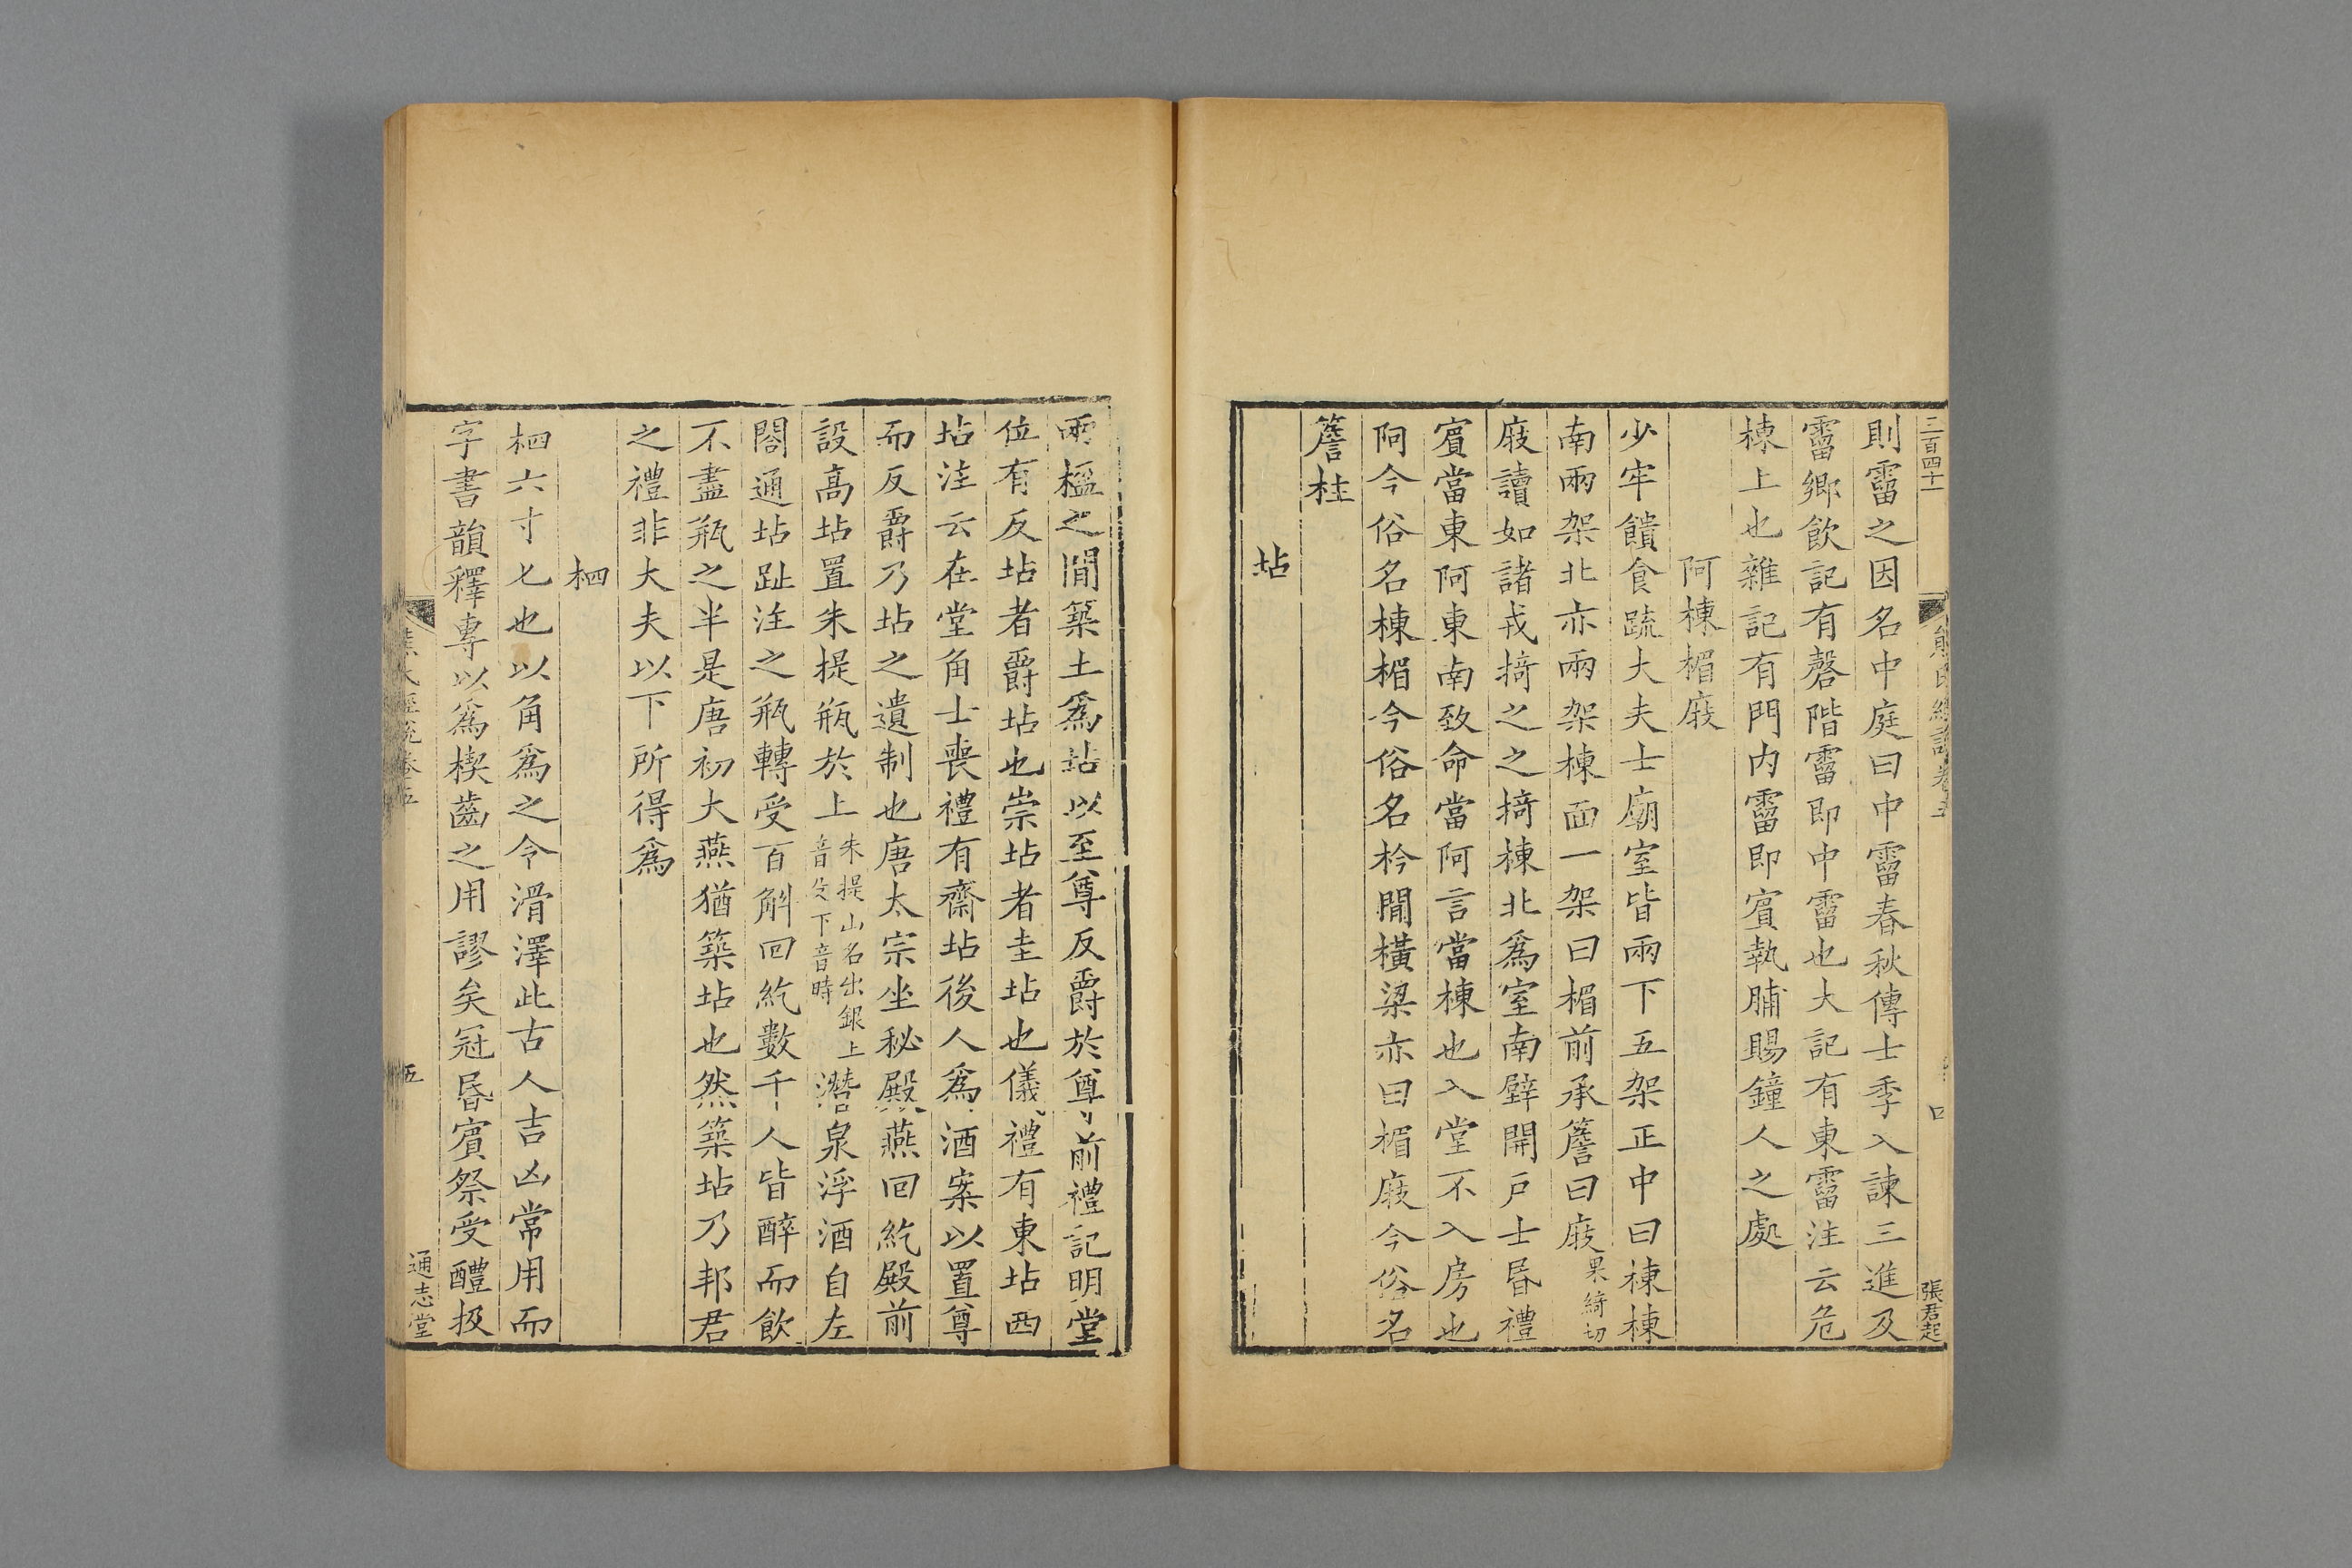 二百四十一
張君起
則霤之因名中庭曰中霤春秋傳士季入諫三進及
霤鄉飲記有磬階霤即中霤也大記有東霤注云危
棟上也雜記有門内霤即賓執脯賜鐘人之處
阿棟楣庪
少牢饋食疏大夫士廟室皆兩下五架正中曰棟棟
南兩架北亦兩架棟面一架曰楣前承簷曰庪果綺切
庪讀如諸戎掎之之掎棟北爲室南壁開戸士昬禮
賓當東阿東南致命當阿言當棟也入堂不入房也
阿今俗名棟楣今俗名枔閒橫梁亦曰楣庪今俗名
簷柱
坫
兩楹之閒築土爲坫以至尊反爵於尊前禮記明堂
位有反坫者爵坫也崇坫者圭坫也儀禮有東坫西
坫注云在堂角士喪禮有齋坫後人爲酒案以置尊
而反爵乃坫之遺制也唐太宗坐秘殿燕回紇殿前
設高坫置朱提瓶於上朱提山名出銀上音殳下音時潛泉浮酒自左
閤通坫趾注之瓶轉受百斛回紇數千人皆醉而飲
不盡瓶之半是唐初大燕猶築坫也然築坫乃邦君
之禮非大夫以下所得爲
柶
柶六寸匕也以角爲之令滑澤此古人吉凶常用而
字書韻釋專以爲楔齒之用謬矣冠昬賓祭受醴扱
五
通志堂